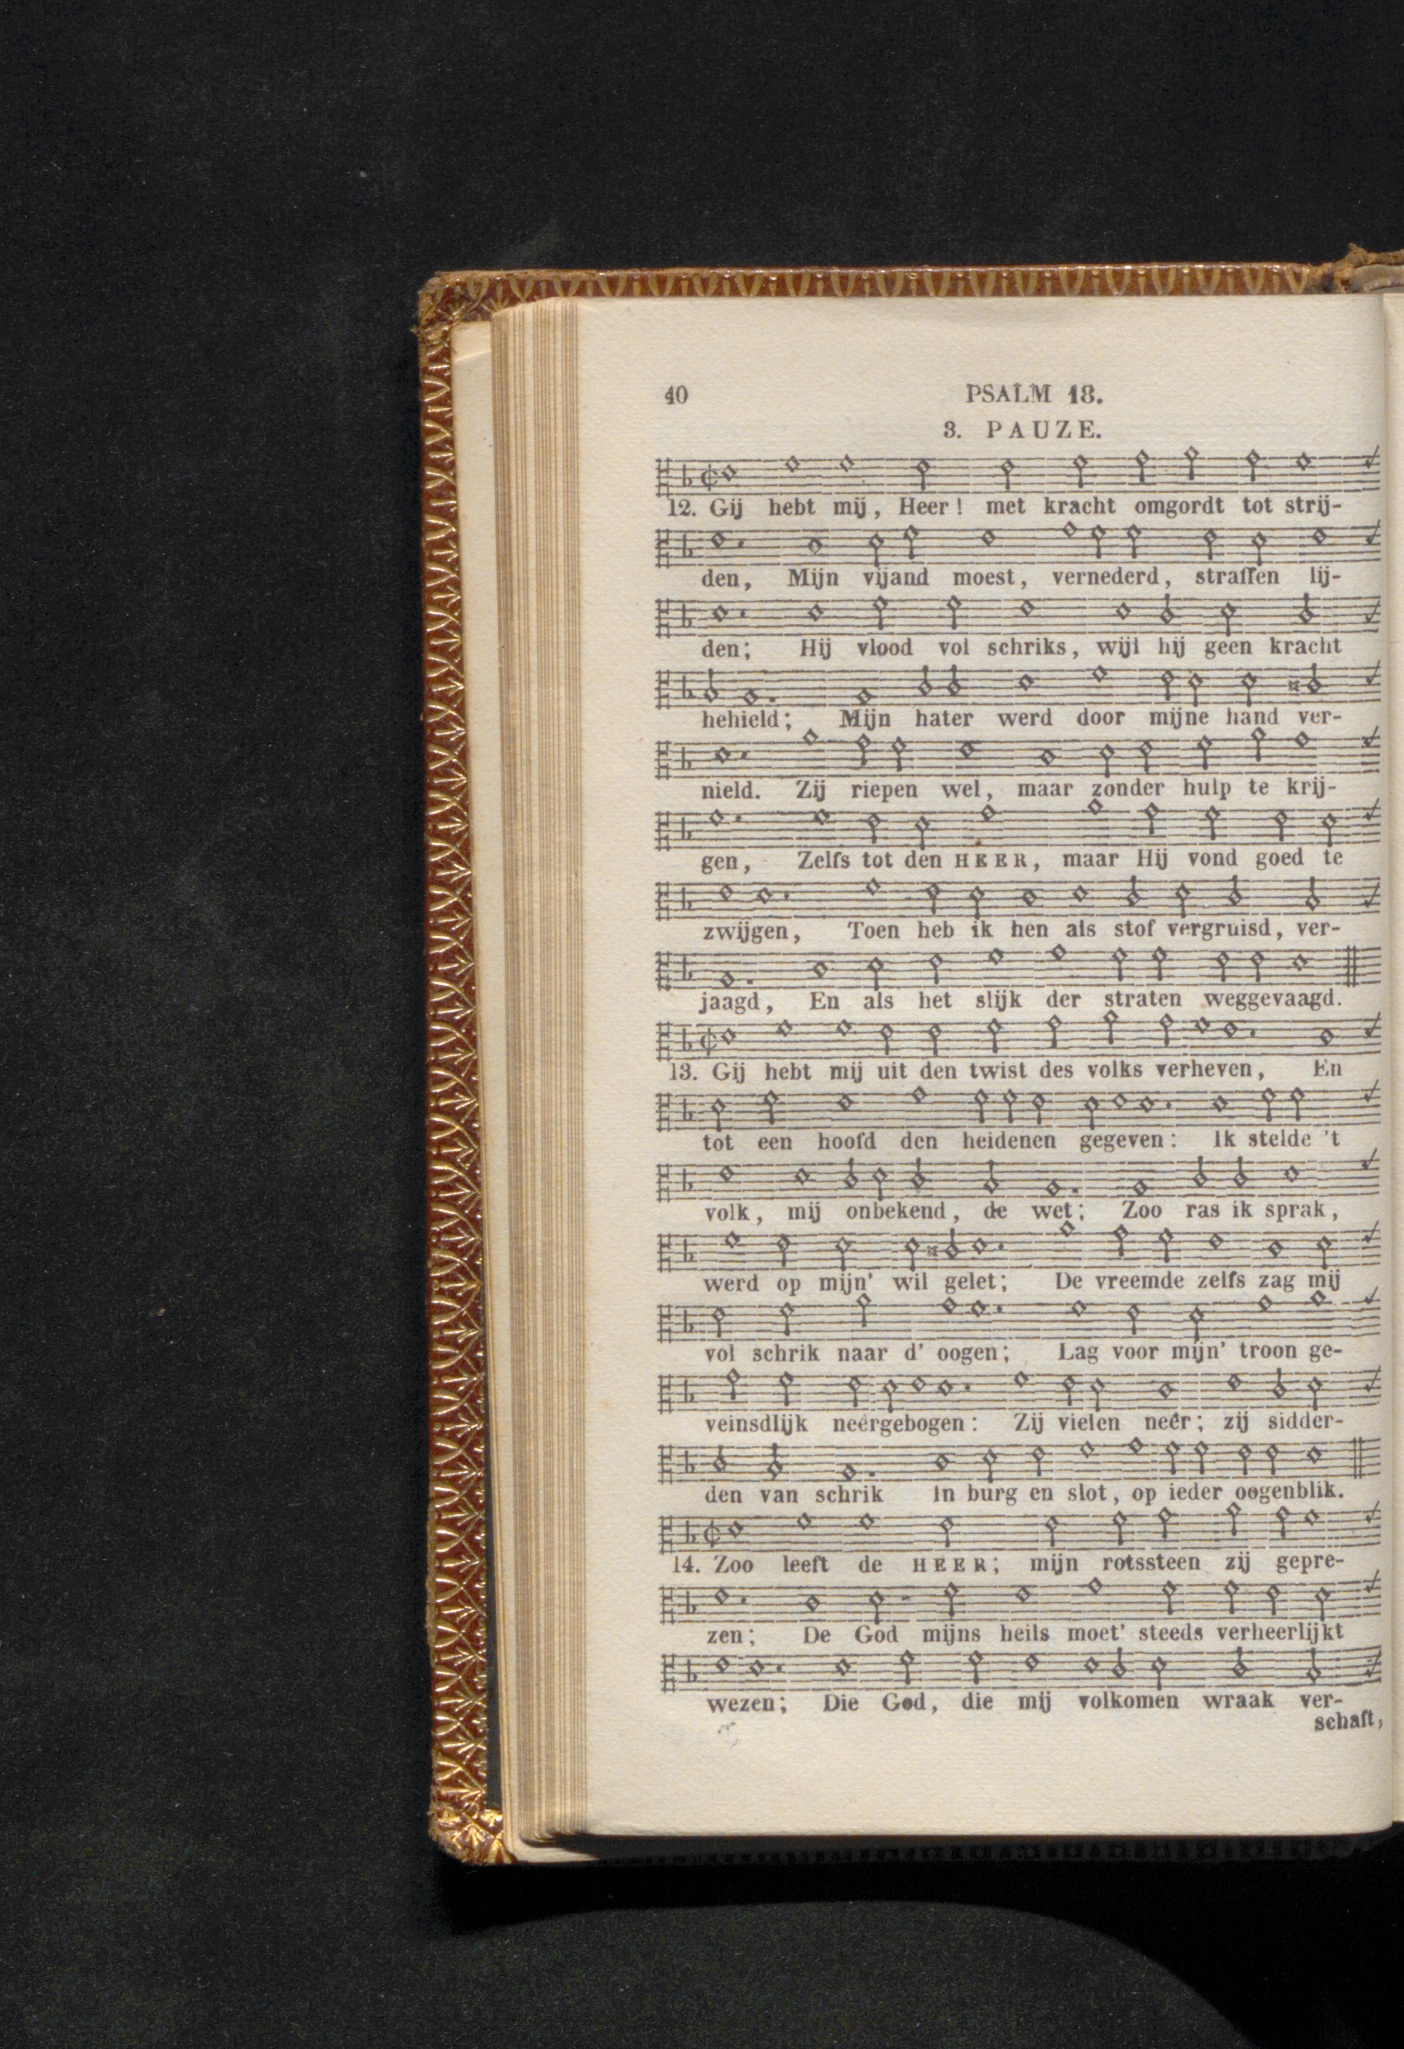 40 PSALM 18.
3. PAUZE.
12. Gij hebt mij, Heer! met kracht omgordt tot strij-
den, Mijn vijand moest, vernederd, straffen lij-
den; Hij vlood vol schriks, wijl hij geen kracht
hehield; Mijn hater werd door mijne hand ver-
nield. Zij riepen wel, maar zonder hulp te krij-
gen, Zelfs tot den HEER, maar Hij vond goed te
zwijgen, Toen heb ik hen als stof vergruisd, ver-
jaagd, En als het slijk der straten weggevaagd.
13. Gij hebt mij uit den twist des volks verheven, En
tot een hoofd den heidenen gegeven: Ik stelde 't
volk, mij onbekend, de wet; Zoo ras ik sprak,
werd op mijn' wil gelet; De vreemde zelfs zag mij
vol schrik naar d' oogen; Lag voor mijn' troon ge-
veinsdlijk neêrgebogen: Zij vielen neêr; zij sidder-
den van schrik In burg en slot, op ieder oogenblik.
14. Zoo leeft de HEER; mijn rotssteen zij gepre-
zen; De God mijns heils moet' steeds verheerlijkt
wezen; Die God, die mij volkomen wraak ver-
schaft,